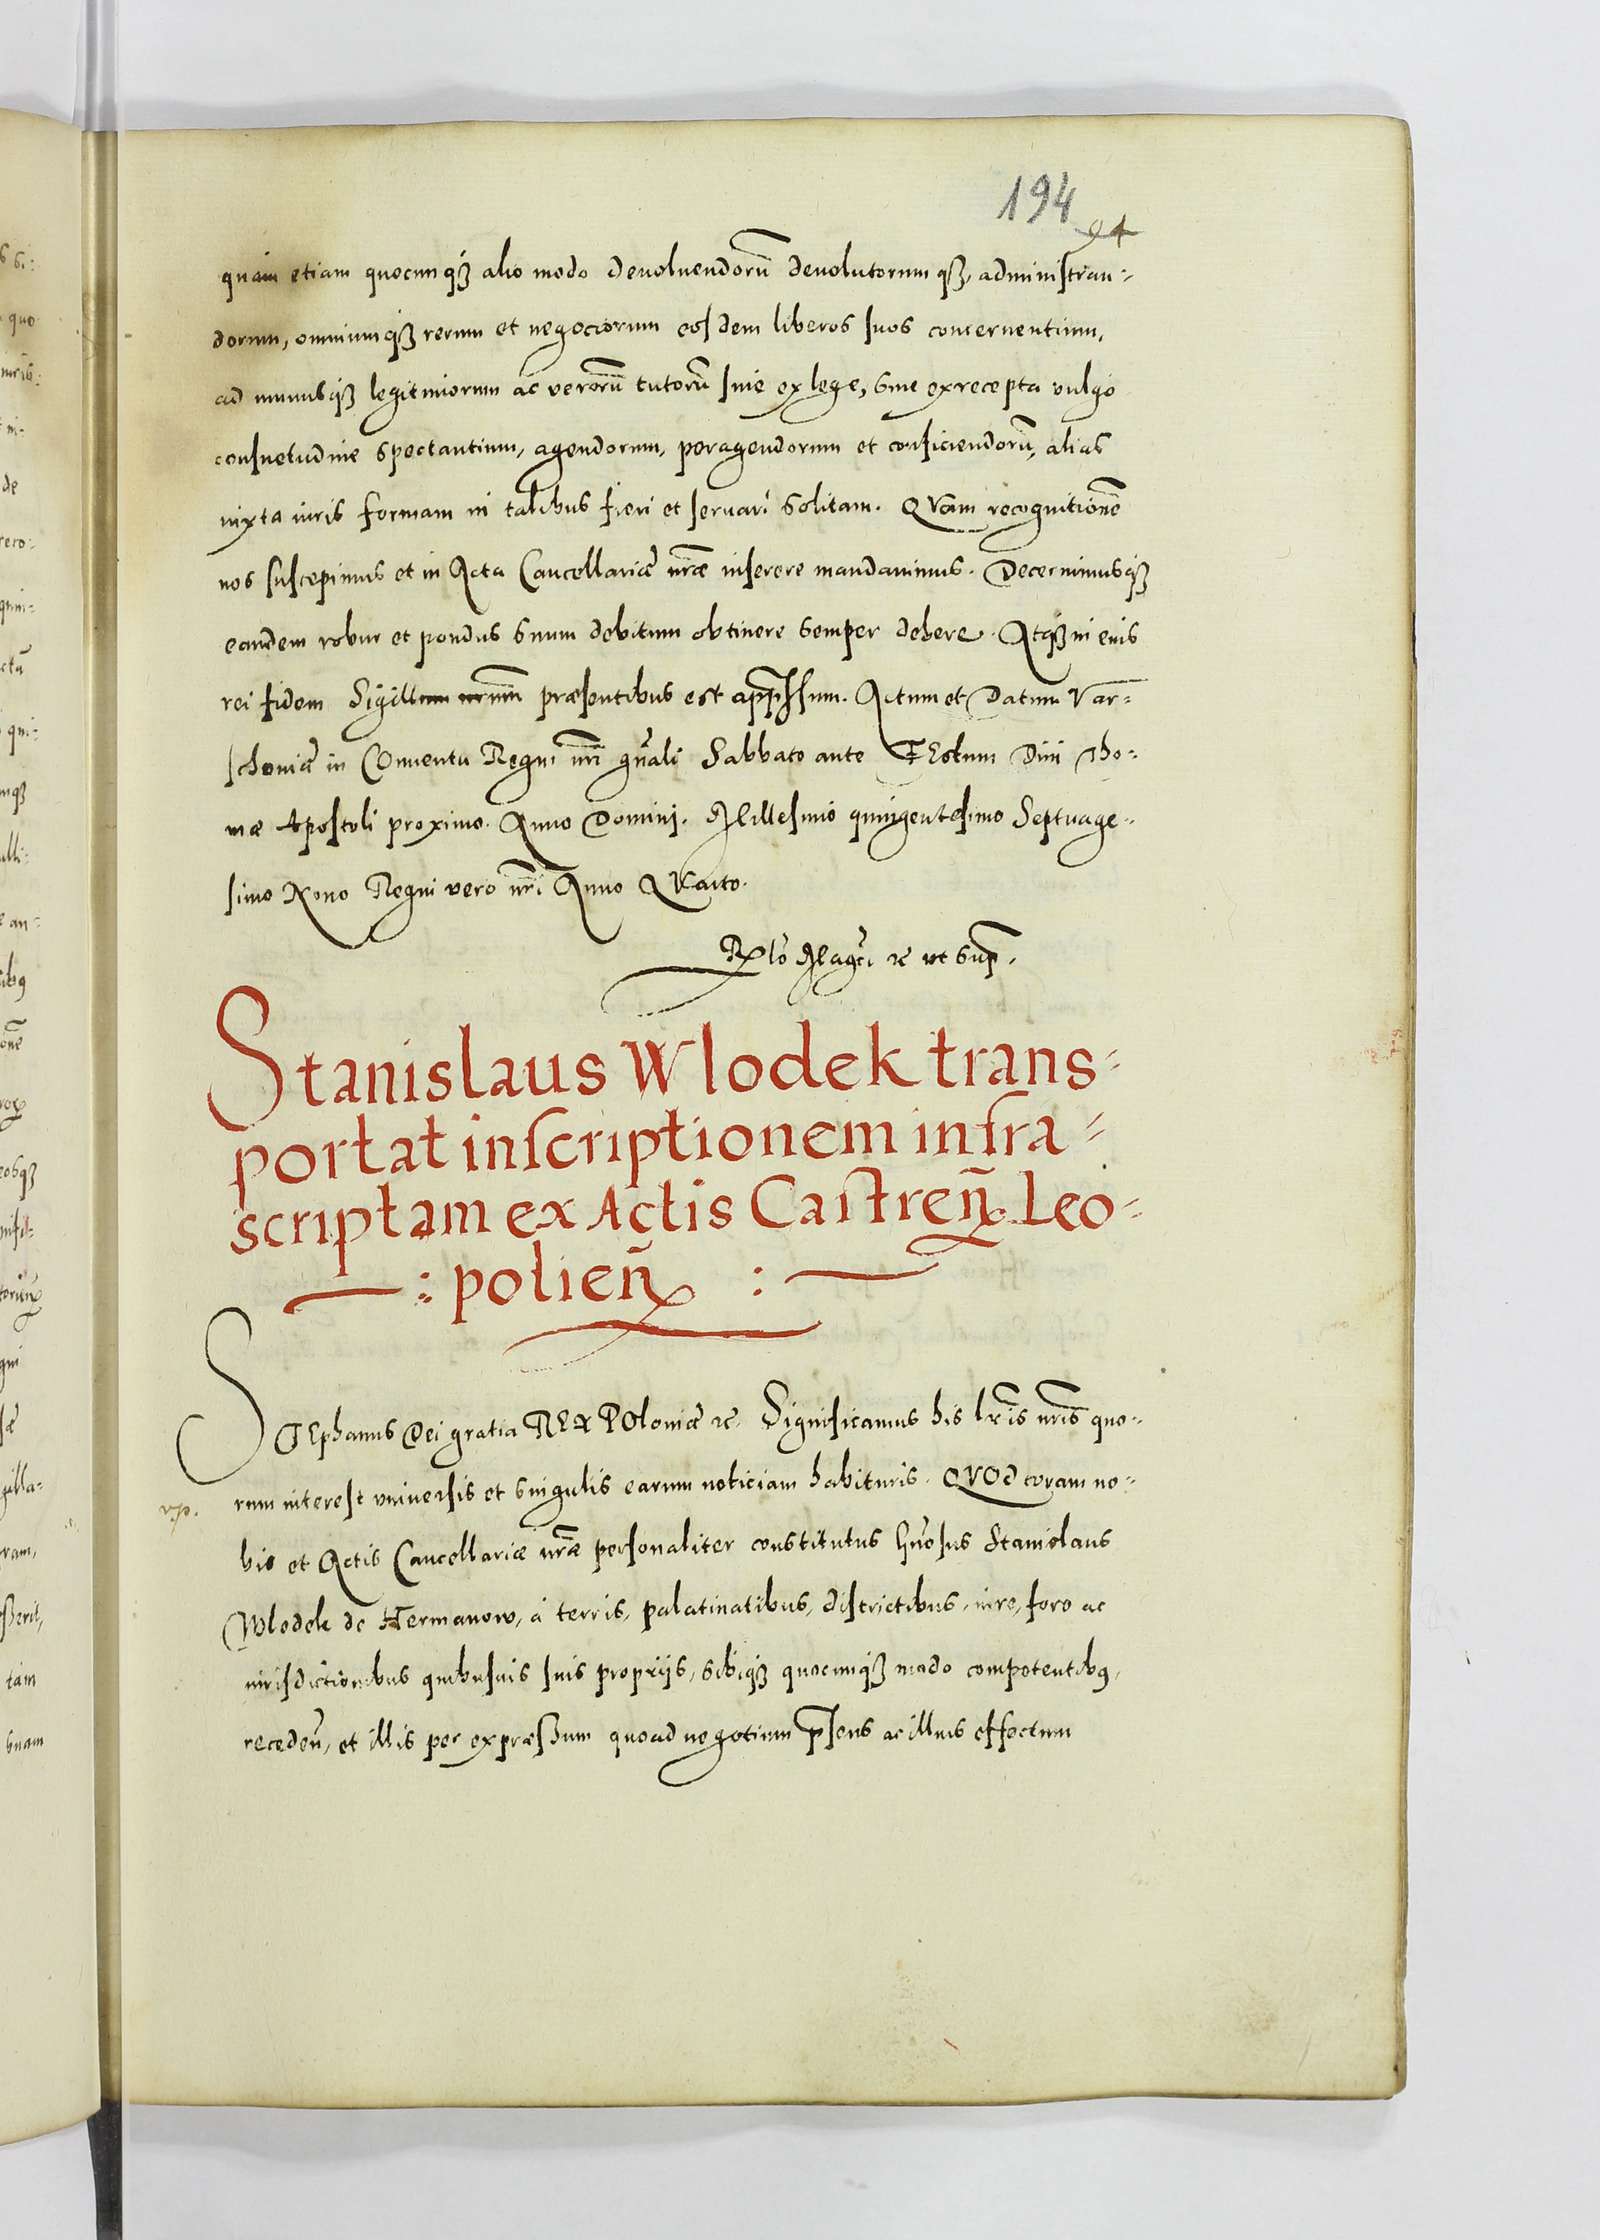 194
94
quàm etiam quocunqꝫ alio modo deuoluendorū deuolutorumqꝫ, administran-
dorum, omniumqꝫ rerum et negociorum eosdem liberos suos concernentium,
ad munusqꝫ legitimorum ac verorū tutorū siue ex lege, siue ex recepta vulgo
consuetudine spectantium, agendorum, peragendorum et conficiendorū, alias
iuxta iuris formam in talibus fieri et seruari solitam. QVam recognitionē
nos suscepimus et in Acta Cancellariæ nr̄æ inserere mandauimus. Decernimusqꝫ
eandem robur et pondus suum debitum obtinere semper debere. Atqꝫ in euis
rei fidem Sigillum nrum præsentibus est app̄ssum. Actum et Datum Var-
schouiæ in Conuentu Regni nr̄i gn̄ali Sabbato ante FEstum Diui Tho-
mæ Apostoli proximo. Anno Domini. Millesimo quingentesimo Septuage-
simo Nono Regni vero nr̄i Anno QVarto.
Rlo Magci ꝛc vt sup̄.
Stanislaus Wlodek trans-
portat inscriptionem infra-
scriptam ex Actis Castren̄. Leo-
: polien̄ :
STEphanus Dei gratia REX POloniæ ꝛc. Significamus his lr̄is nr̄is quo-
rum interest vniuersis et singulis earum noticiam habituris. QVOd coram no-
v.p.
bis et Actis Cancellariæ nr̄æ personaliter constitutus Gn̄osus Stanislaus
Wlodek de Hermanow, à terris, palatinatibus, districtibus, iure, foro ac
iurisdictionibus quibusuis suis proprijs, sibiqꝫ quocunqꝫ modo competentibꝯ,
recedeñ, et illis per expræssum quoad negotium p̄sens ac illius effectum